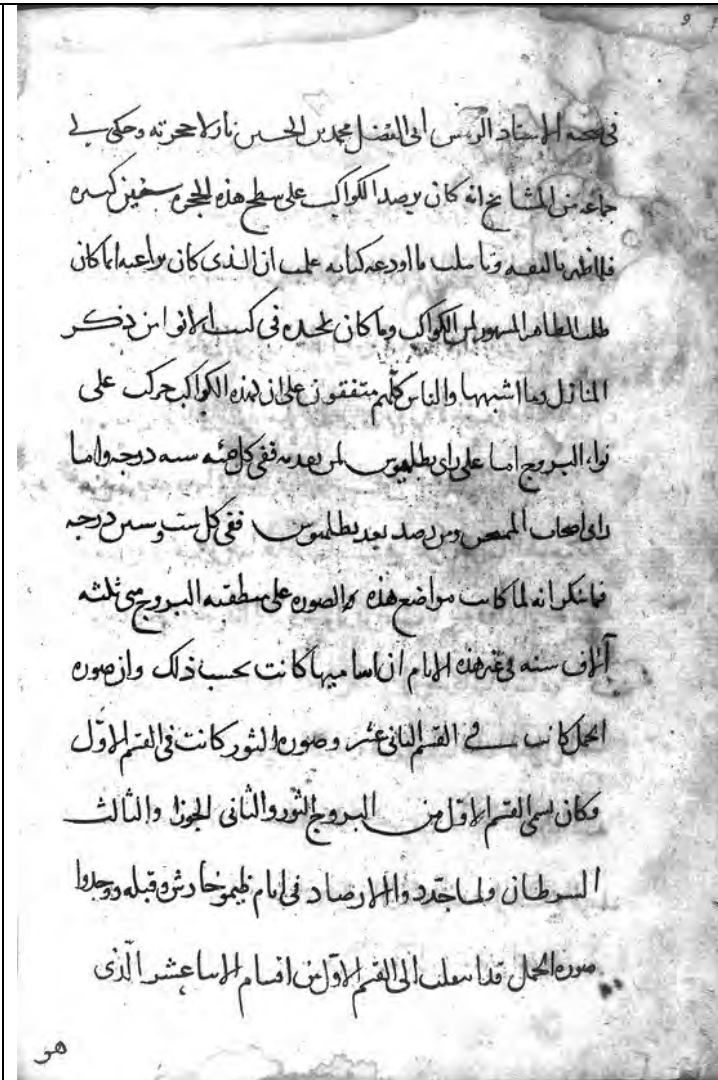 في صحبة الاستاذ الرئيس ابى الفضل محمد بن الحسين نازلا حجرته وحكى لي
جماعه من المشايخ انه كان يرصد الكواكب على سطح هذه الحجره سنين كثيره
فلما ظهر بالنفسه وتاملت ما اودعه كتابه علمت ان الذى كان يراعيه انما كان
طلب الظاهر المشهور من الكواكب وما كان يجده فى كتب الانوا من ذكر
المنازل وما اشبهها والناس كلهم متفقون على ان لهذه الكواكب حركه على
توالى البروج اما على راى بطلميوس ومن تقدمه ففى كل مئه سنه درجه واما
راى اصحاب الممتحن ومن رصد بعد بطلميوس ففى كل ست وستين درجه
فما ننكر انه لما كانت مواضع هذه الصوره على منطقه البروج منذ ثلثه
آلاف سنه فى غير هذه الايام ان اساميها كانت بحسب ذلك وان صوره
الحمل كانت فى القسم الثانى عشر وصوره الثور كانت فى القسم الاوّل
وكان يسمى القسم الاول من البروج الثور والثانى الجوزا والثالث
السرطان ولما جدّدوا الارصاد فى ايام طيموخارش وقبله ووجدوا
صوره الحمل قد انتقلت الى القسم الاوّل من اقسام الاثنا عشر الّذى
هو